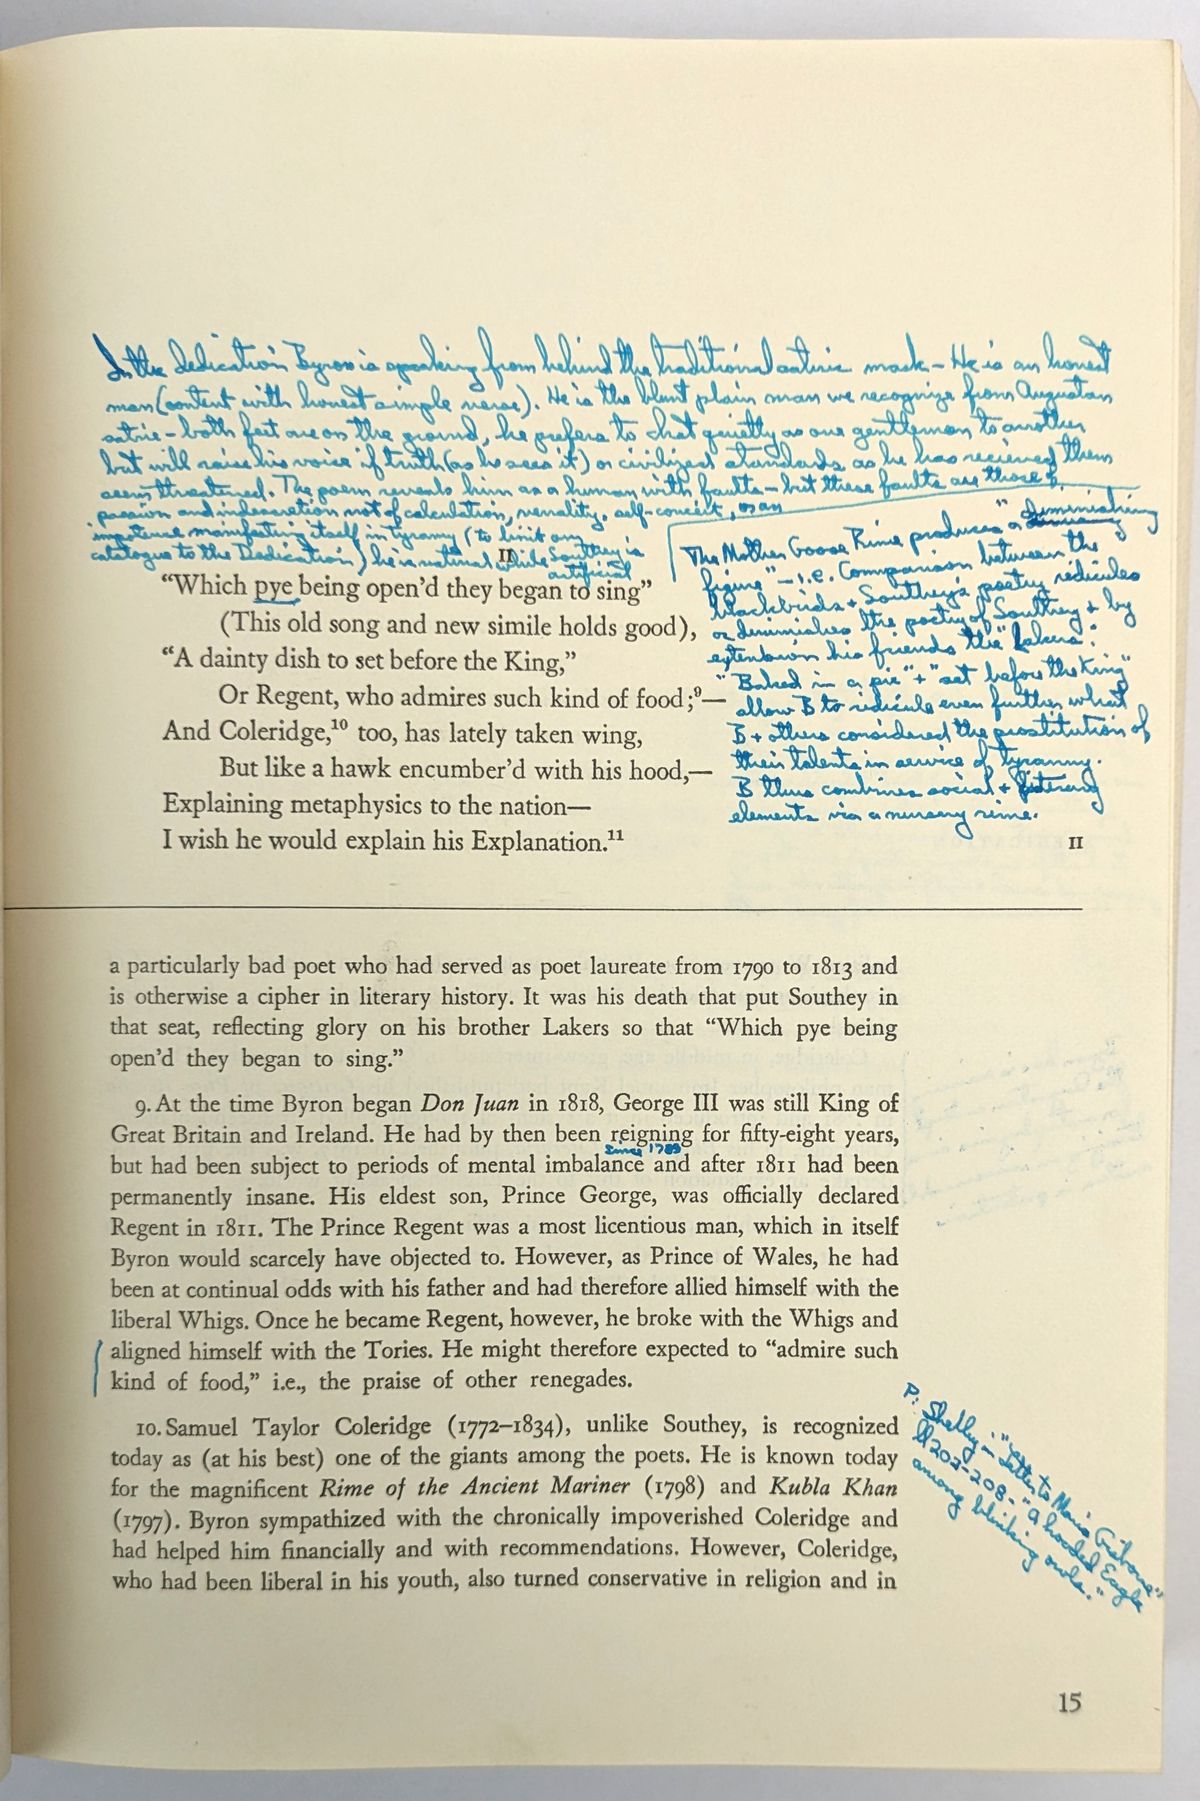 In the dedication Byron is speaking from behind the traditional satiric mask – He is an honest
man (content with honest simple verse). He is the blunt plain man we recognize from Augustan
satire – both feet are on the ground, he prefers to chat quietly as one gentleman to another
but will raise his voice if truth (as he sees it) or civilized standards as he has recieved them
seem threatened. The poem reveals him as a human with faults – but these faults are those of
passion and indiscretion not of calculation, venality, self-conceit, or an
impotence manifesting itself in tyranny (to limit any
catalogue to the Dedication) he is natural while Southey is
artificial
II
"Which pye being open'd they began to sing"
(This old song and new simile holds good),
"A dainty dish to set before the King,"
Or Regent, who admires such kind of food;⁹—
And Coleridge,¹⁰ too, has lately taken wing,
But like a hawk encumber'd with his hood,—
Explaining metaphysics to the nation—
I wish he would explain his Explanation.¹¹
The Mother Goose Rime produces "a diminishing
figure" – i.e. Comparison between the
blackbirds + Southey's poetry ridicules
or diminishes the poetry of Southey + by
extention his friends the "Lakers".
"Baked in a pie" + "set before the King"
allow B to ridicule even further what
B + others considered the prostitution of
their talents in service of tyranny.
B thus combines social + literary
elements via a nursery rime.
II
a particularly bad poet who had served as poet laureate from 1790 to 1813 and
is otherwise a cipher in literary history. It was his death that put Southey in
that seat, reflecting glory on his brother Lakers so that "Which pye being
open'd they began to sing."
9. At the time Byron began Don Juan in 1818, George III was still King of
Great Britain and Ireland. He had by then been reigning for fifty-eight years,
since 1789
but had been subject to periods of mental imbalance and after 1811 had been
permanently insane. His eldest son, Prince George, was officially declared
Regent in 1811. The Prince Regent was a most licentious man, which in itself
Byron would scarcely have objected to. However, as Prince of Wales, he had
been at continual odds with his father and had therefore allied himself with the
liberal Whigs. Once he became Regent, however, he broke with the Whigs and
aligned himself with the Tories. He might therefore expected to "admire such
kind of food," i.e., the praise of other renegades.
10. Samuel Taylor Coleridge (1772–1834), unlike Southey, is recognized
today as (at his best) one of the giants among the poets. He is known today
for the magnificent Rime of the Ancient Mariner (1798) and Kubla Khan
(1797). Byron sympathized with the chronically impoverished Coleridge and
had helped him financially and with recommendations. However, Coleridge,
who had been liberal in his youth, also turned conservative in religion and in
P: Shelley – "Letter to Maria Gisborne"
ll 202–208 – "a hooded Eagle
among blinking owls."
15